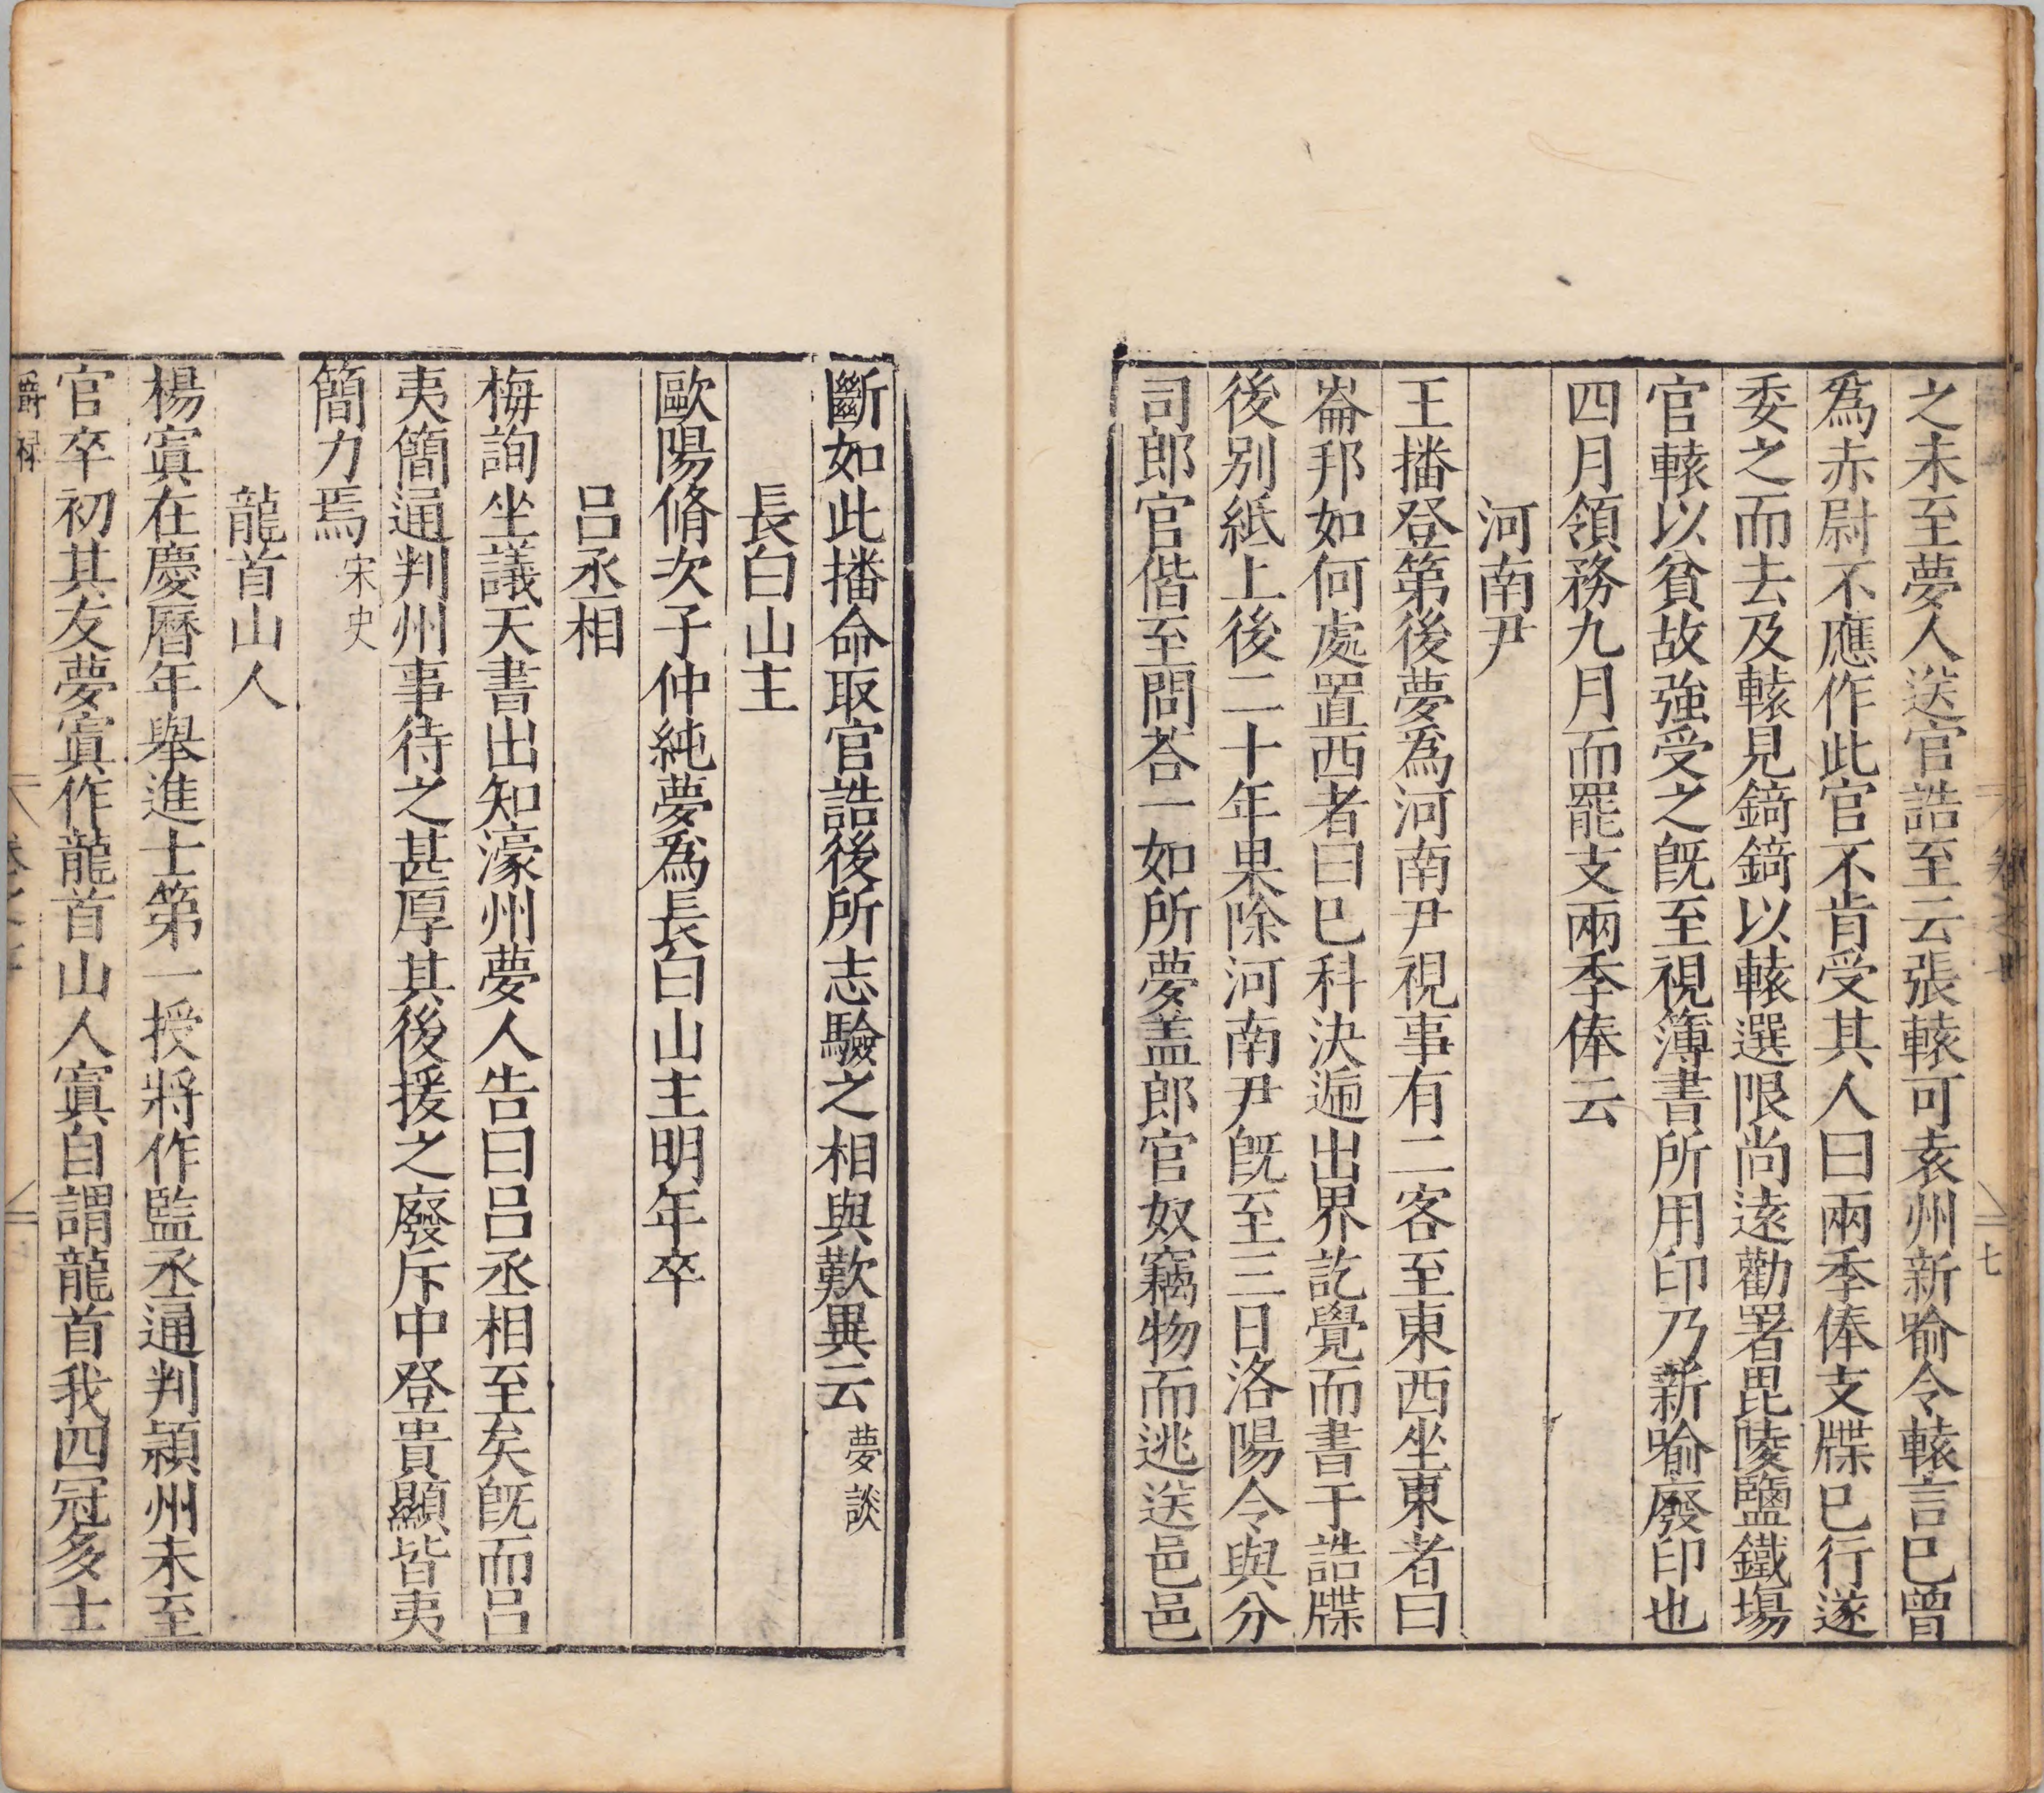 之未至夢人送官誥至云張轅可袁州新喻令轅言已曾
爲赤尉不應作此官不肯受其人曰兩季俸支牒已行遂
委之而去及轅見錡錡以轅選限尚遠勸署毘陵鹽鐵場
官轅以貧故強受之旣至視簿書所用印乃新喻廢印也
四月領務九月而罷支兩季俸云
河南尹
王播登第後夢爲河南尹視事有二客至東西坐東者曰
崙邦如何處置西者曰已科決遞出界訖覺而書于誥牒
後別紙上後二十年果除河南尹旣至三日洛陽令與分
司郎官偕至問荅一如所夢盖郎官奴竊物而逃送邑邑
七
斷如此播命取官誥後所志驗之相與歎異云夢談
長白山主
歐陽脩次子仲純夢爲長白山主明年卒
呂丞相
梅詢坐議天書出知濠州夢人告曰呂丞相至矣旣而呂
夷簡通判州事待之甚厚其後援之廢斥中登貴顯皆夷
簡力焉宋史
龍首山人
楊寘在慶曆年舉進士第一授將作監丞通判潁州未至
官卒初其友夢寘作龍首山人寘自謂龍首我四冠多士